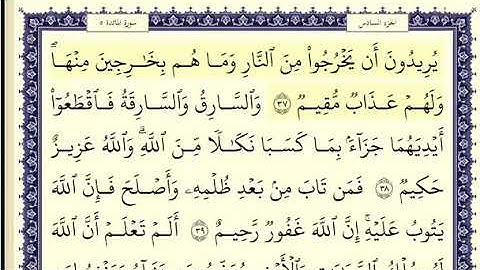 سورة المائدة ٥
الجزء السادس
يُرِيدُونَ أَن يَخْرُجُوا۟ مِنَ ٱلنَّارِ وَمَا هُم بِخَـٰرِجِينَ مِنْهَا ۖ
وَلَهُمْ عَذَابٌ مُّقِيمٌ ٣٧ وَٱلسَّارِقُ وَٱلسَّارِقَةُ فَٱقْطَعُوٓا۟
أَيْدِيَهُمَا جَزَآءًۢ بِمَا كَسَبَا نَكَـٰلًا مِّنَ ٱللَّهِ ۗ وَٱللَّهُ عَزِيزٌ
حَكِيمٌ ٣٨ فَمَن تَابَ مِنۢ بَعْدِ ظُلْمِهِۦ وَأَصْلَحَ فَإِنَّ ٱللَّهَ
يَتُوبُ عَلَيْهِ ۗ إِنَّ ٱللَّهَ غَفُورٌ رَّحِيمٌ ٣٩ أَلَمْ تَعْلَمْ أَنَّ ٱللَّهَ